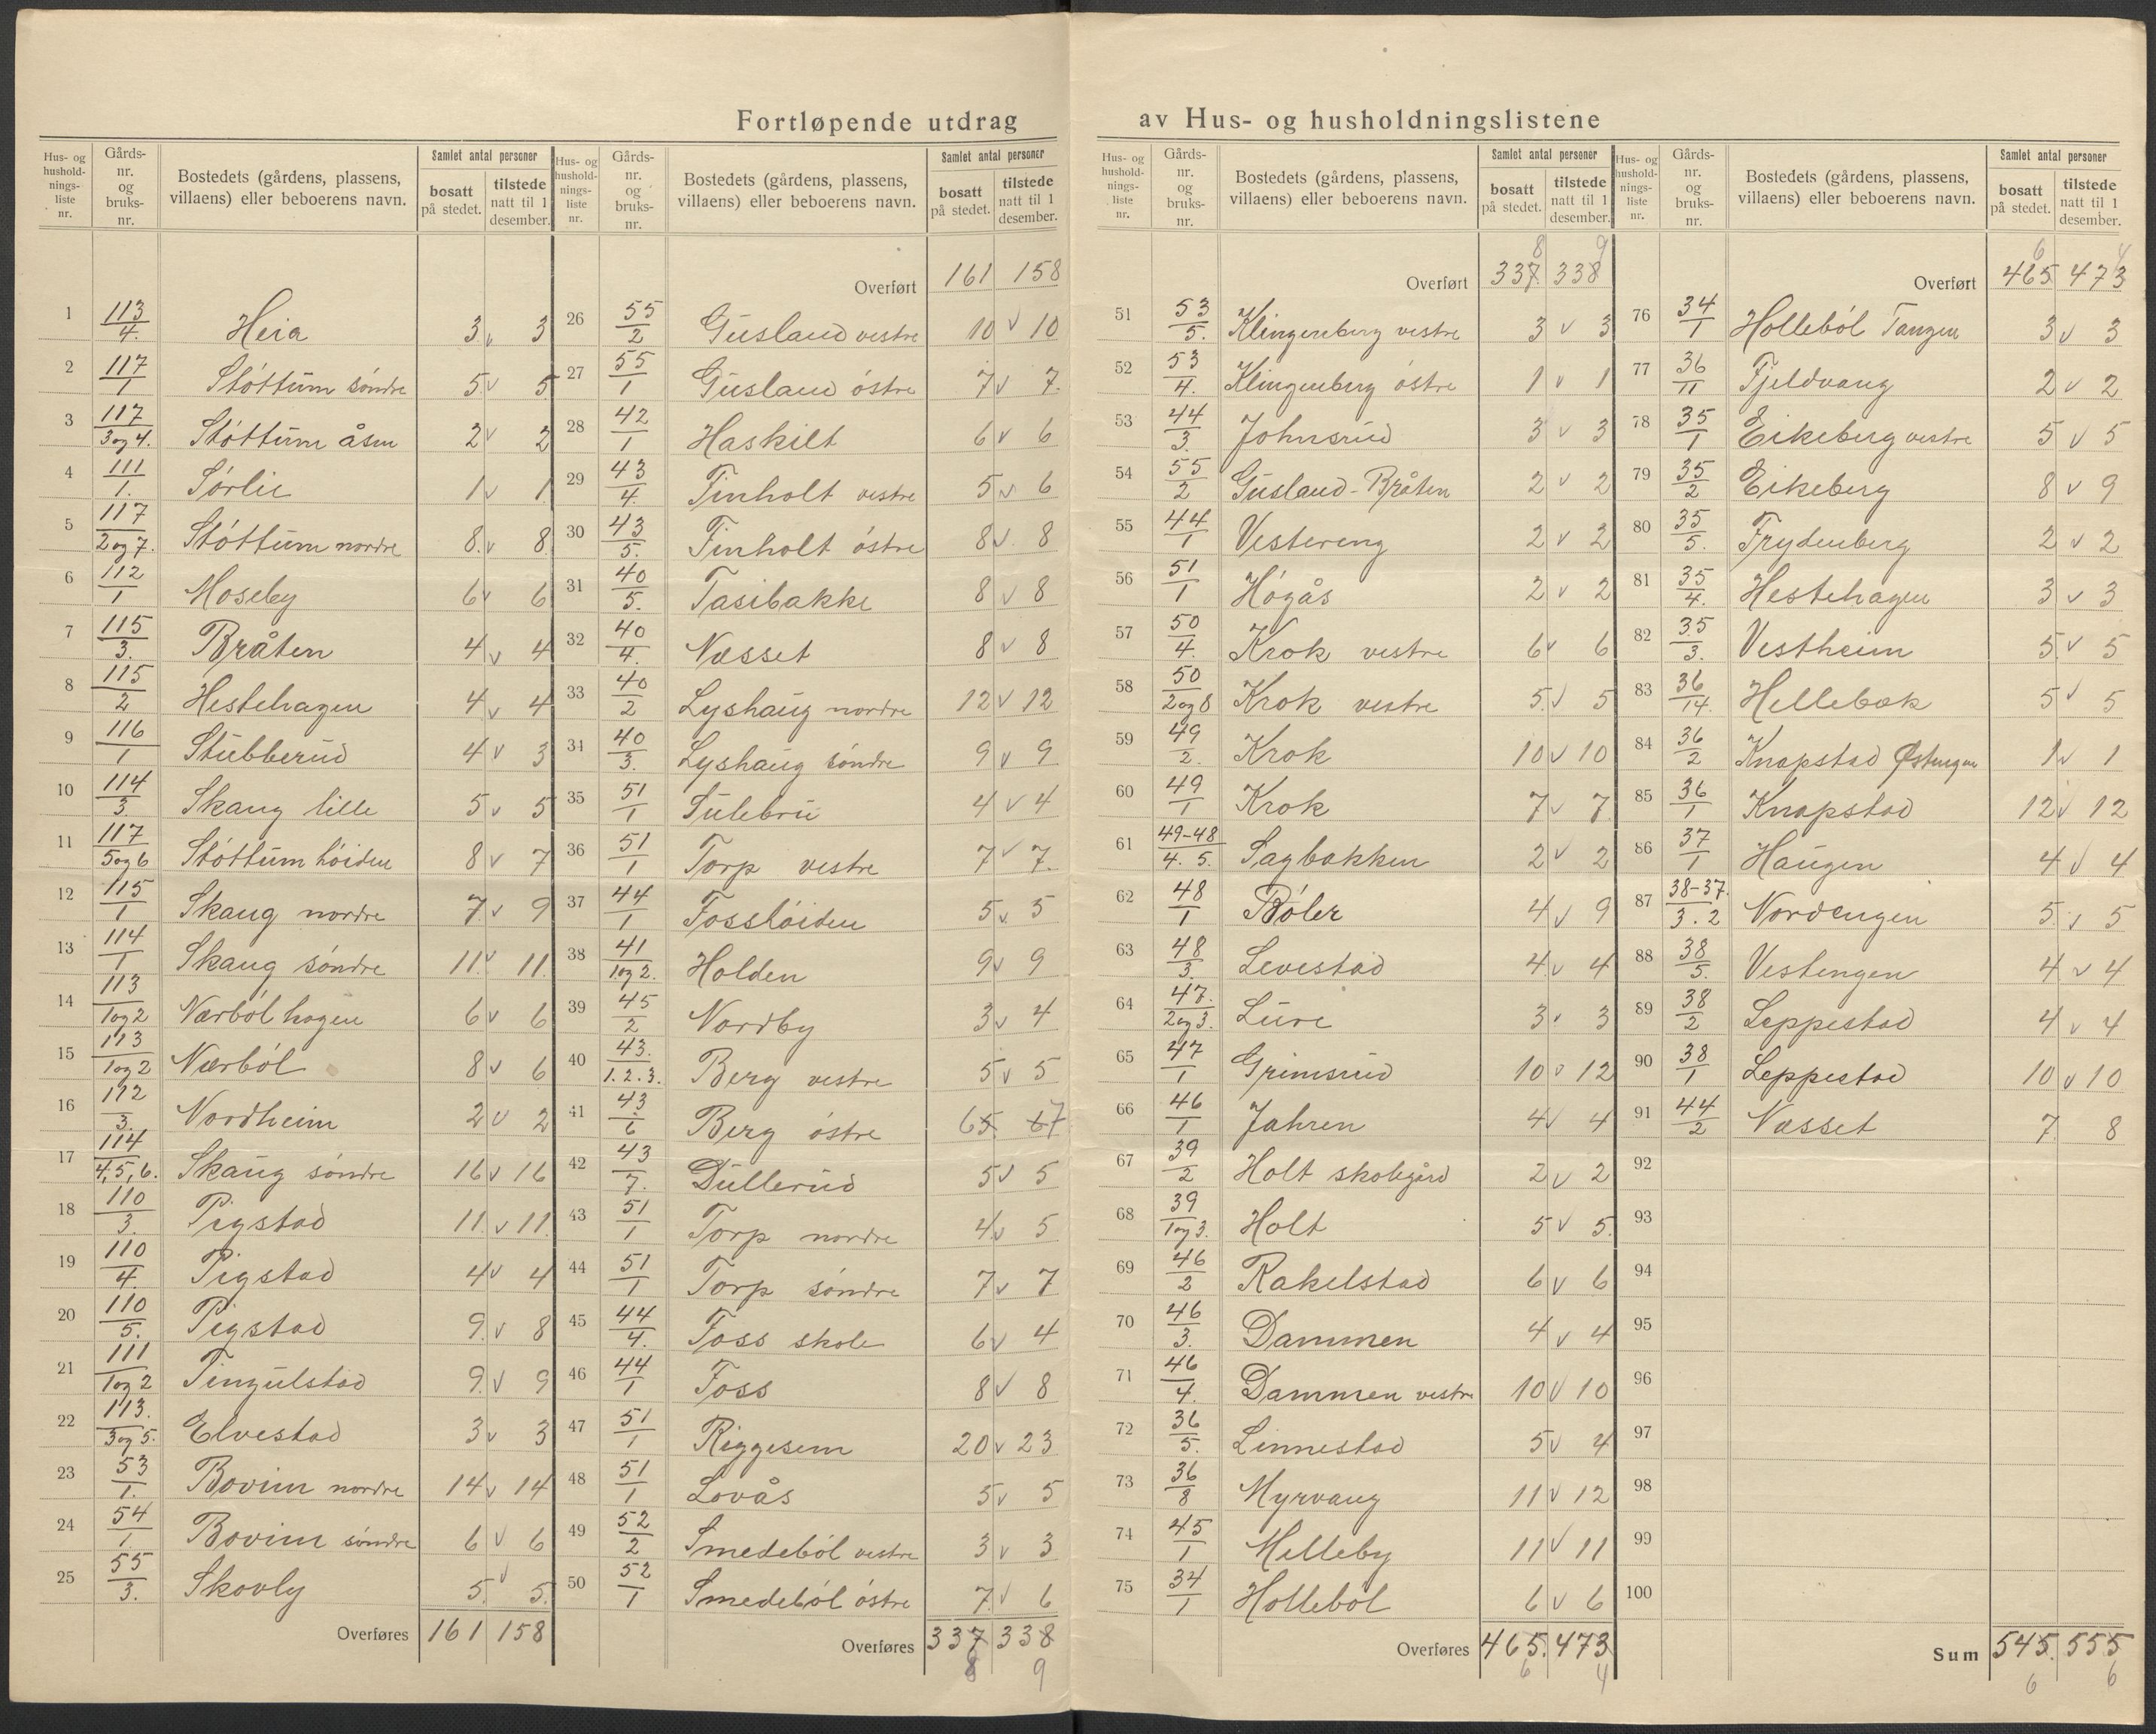 Fortløpende utdrag av Hus- og husholdningslistene
Hus- og hushold-nings-liste nr. | Gårds-nr. og bruks-nr. | Bostedets (gårdens, plassens, villaens) eller beboerens navn. | Samlet antal personer | bosatt på stedet. | tilstede natt til 1 desember.
1 113/4. Heia 3 v 3
2 117/1 Støttum søndre 5 v 5
3 117/3 og 4. Støttum åsen 2 v 2
4 111/1. Sørlie 1 v 1
5 117/2 og 7. Støttum nordre 8. v 8
6 112/1 Moseby 6 v 6
7 115/3. Bråten 4 v 4
8 115/2 Hestehagen 4 v 4
9 116/1 Stubberud 4 v 3
10 114/3 Skaug lille 5 v 5
11 117/5 og 6 Støttum høiden 8 v 7
12 115/1 Skaug nordre 7. v 9
13 114/1 Skaug søndre 11. v 11.
14 113/1 og 2 Nærbøl hagen 6 v 6
15 113/1 og 2 Nærbøl 8 v 6
16 112/3. Nordheim 2 v 2
17 114/4, 5, 6. Skaug søndre 16 v 16
18 110/3. Pigstad 11. v 11.
19 110/4. Pigstad 4 v 4
20 110/5. Pigstad 9. v 8
21 111/1 og 2 Tingulstad 9. v 9
22 113./3 og 5. Elvestad 3 v 3
23 53/1. Bovim nordre 14 v 14
24 54/1. Bovim søndre 6 v 6
25 55/3. Skovly 5. v 5.
Overføres 161 158
Hus- og hushold-nings-liste nr. | Gårds-nr. og bruks-nr. | Bostedets (gårdens, plassens, villaens) eller beboerens navn. | Samlet antal personer | bosatt på stedet. | tilstede natt til 1 desember.
Overført 161 158
26 55/2 Gusland vestre 10 v 10
27 55/1 Gusland østre 7 v 7.
28 42/1 Haskilt 6 v 6
29 43/4. Finholt vestre 5 v 6
30 43/5. Finholt østre 8 v. 8
31 40/5. Tasibakke 8 v 8
32 40/4. Næsset 8 v 8
33 40/2 Lyshaug nordre 12 v 12
34 40/3. Lyshaug søndre 9 v 9
35 51/1 Sulebru 4 v 4
36 51/1 Torp vestre 7 v 7.
37 44/1 Fosshøiden 5 v 5
38 41/1 og 2. Holden 9 v 9
39 45/2 Nordby 3 v 4
40 43./1. 2. 3. Berg vestre 5 v 5
41 43/6 Berg østre 65 67
42 43/7. Dullerud 5 v 5
43 51/1 Torp nordre 4 v 5
44 51/1 Torp søndre 7 v 7
45 44/4. Foss skole 6 v 4
46 44/1 Foss 8 v 8
47 51/1 Riggesem 20 v 23
48 51/1 Lovås 5 v 5
49 52/2 Smedebøl vestre 3 v 3
50 52/1 Smedebøl østre 7. v 6
Overføres 337 338
8 9
Hus- og hushold-nings-liste nr. | Gårds-nr. og bruks-nr. | Bostedets (gårdens, plassens, villaens) eller beboerens navn. | Samlet antal personer | bosatt på stedet. | tilstede natt til 1 desember.
8 9
Overført 337 338
51 53/5. Klingenberg vestre 3 v 3
52 53/4. Klingenberg østre 1 v 1
53 44/3. Johnsrud 3 v 3
54 55/2 Gusland-Bråten 2 v 2
55 44/1 Vestereng 2 v 2
56 51/1 Høgås 2 v 2
57 50/4. Krok vestre 6 v 6
58 50/2 og 8 Krok vestre 5. v 5
59 49/2. Krok 10 v 10
60 49/1 Krok 7 v 7
61 49-48/4. 5. Sagbakken 2 v 2
62 48/1 Bøler 4 v 9
63 48/3. Levestad 4 v 4
64 47./2 og 3. Lure 3 v 3
65 47/1 Grimsrud 10 v 12
66 46/1 Jahren 4 v 4
67 39/2 Holt skolegård 2 v 2
68 39/1 og 3. Holt 5 v 5.
69 46/2 Rakelstad 6 v 6
70 46/3. Dammen 4 v 4
71 46/4. Dammen vestre 10 v 10
72 36/5. Linnestad 5 v 4
73 36/8 Myrvang 11 v 12
74 45/1 Melleby 11 v 11
75 34/1 Hollebøl 6 v 6
Overføres 465. 473
6 4
Hus- og hushold-nings-liste nr. | Gårds-nr. og bruks-nr. | Bostedets (gårdens, plassens, villaens) eller beboerens navn. | Samlet antal personer | bosatt på stedet. | tilstede natt til 1 desember.
6 4
Overført 465 473
76 34/1 Hollebøl Tangen 3 v 3
77 36/11 Fjeldvang 2 v 2
78 35/1 Eikeberg vestre 5 v 5
79 35/2 Eikeberg 8 v 9
80 35/5. Frydenberg 2 v 2
81 35/4. Hestehagen 3 v 3
82 35/3. Vestheim 5. v 5
83 36/14. Hellebæk 5 v 5
84 36/2 Knapstad Østengen 1 v 1
85 36/1 Knapstad 12 v 12
86 37/1 Haugen 4 v 4
87 38-37./3. 2 Nordengen 5. v 5
88 38/5. Vestengen 4 v 4
89 38/2 Leppestad 4 v 4
90 38/1 Leppestad 10 v 10
91 44/2 Næsset 7. 8
92
93
94
95
96
97
98
99
100
Sum 545. 555
6 6